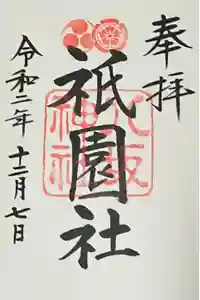 奉拝
祇園社
八坂神社
令和二年 十二月七日